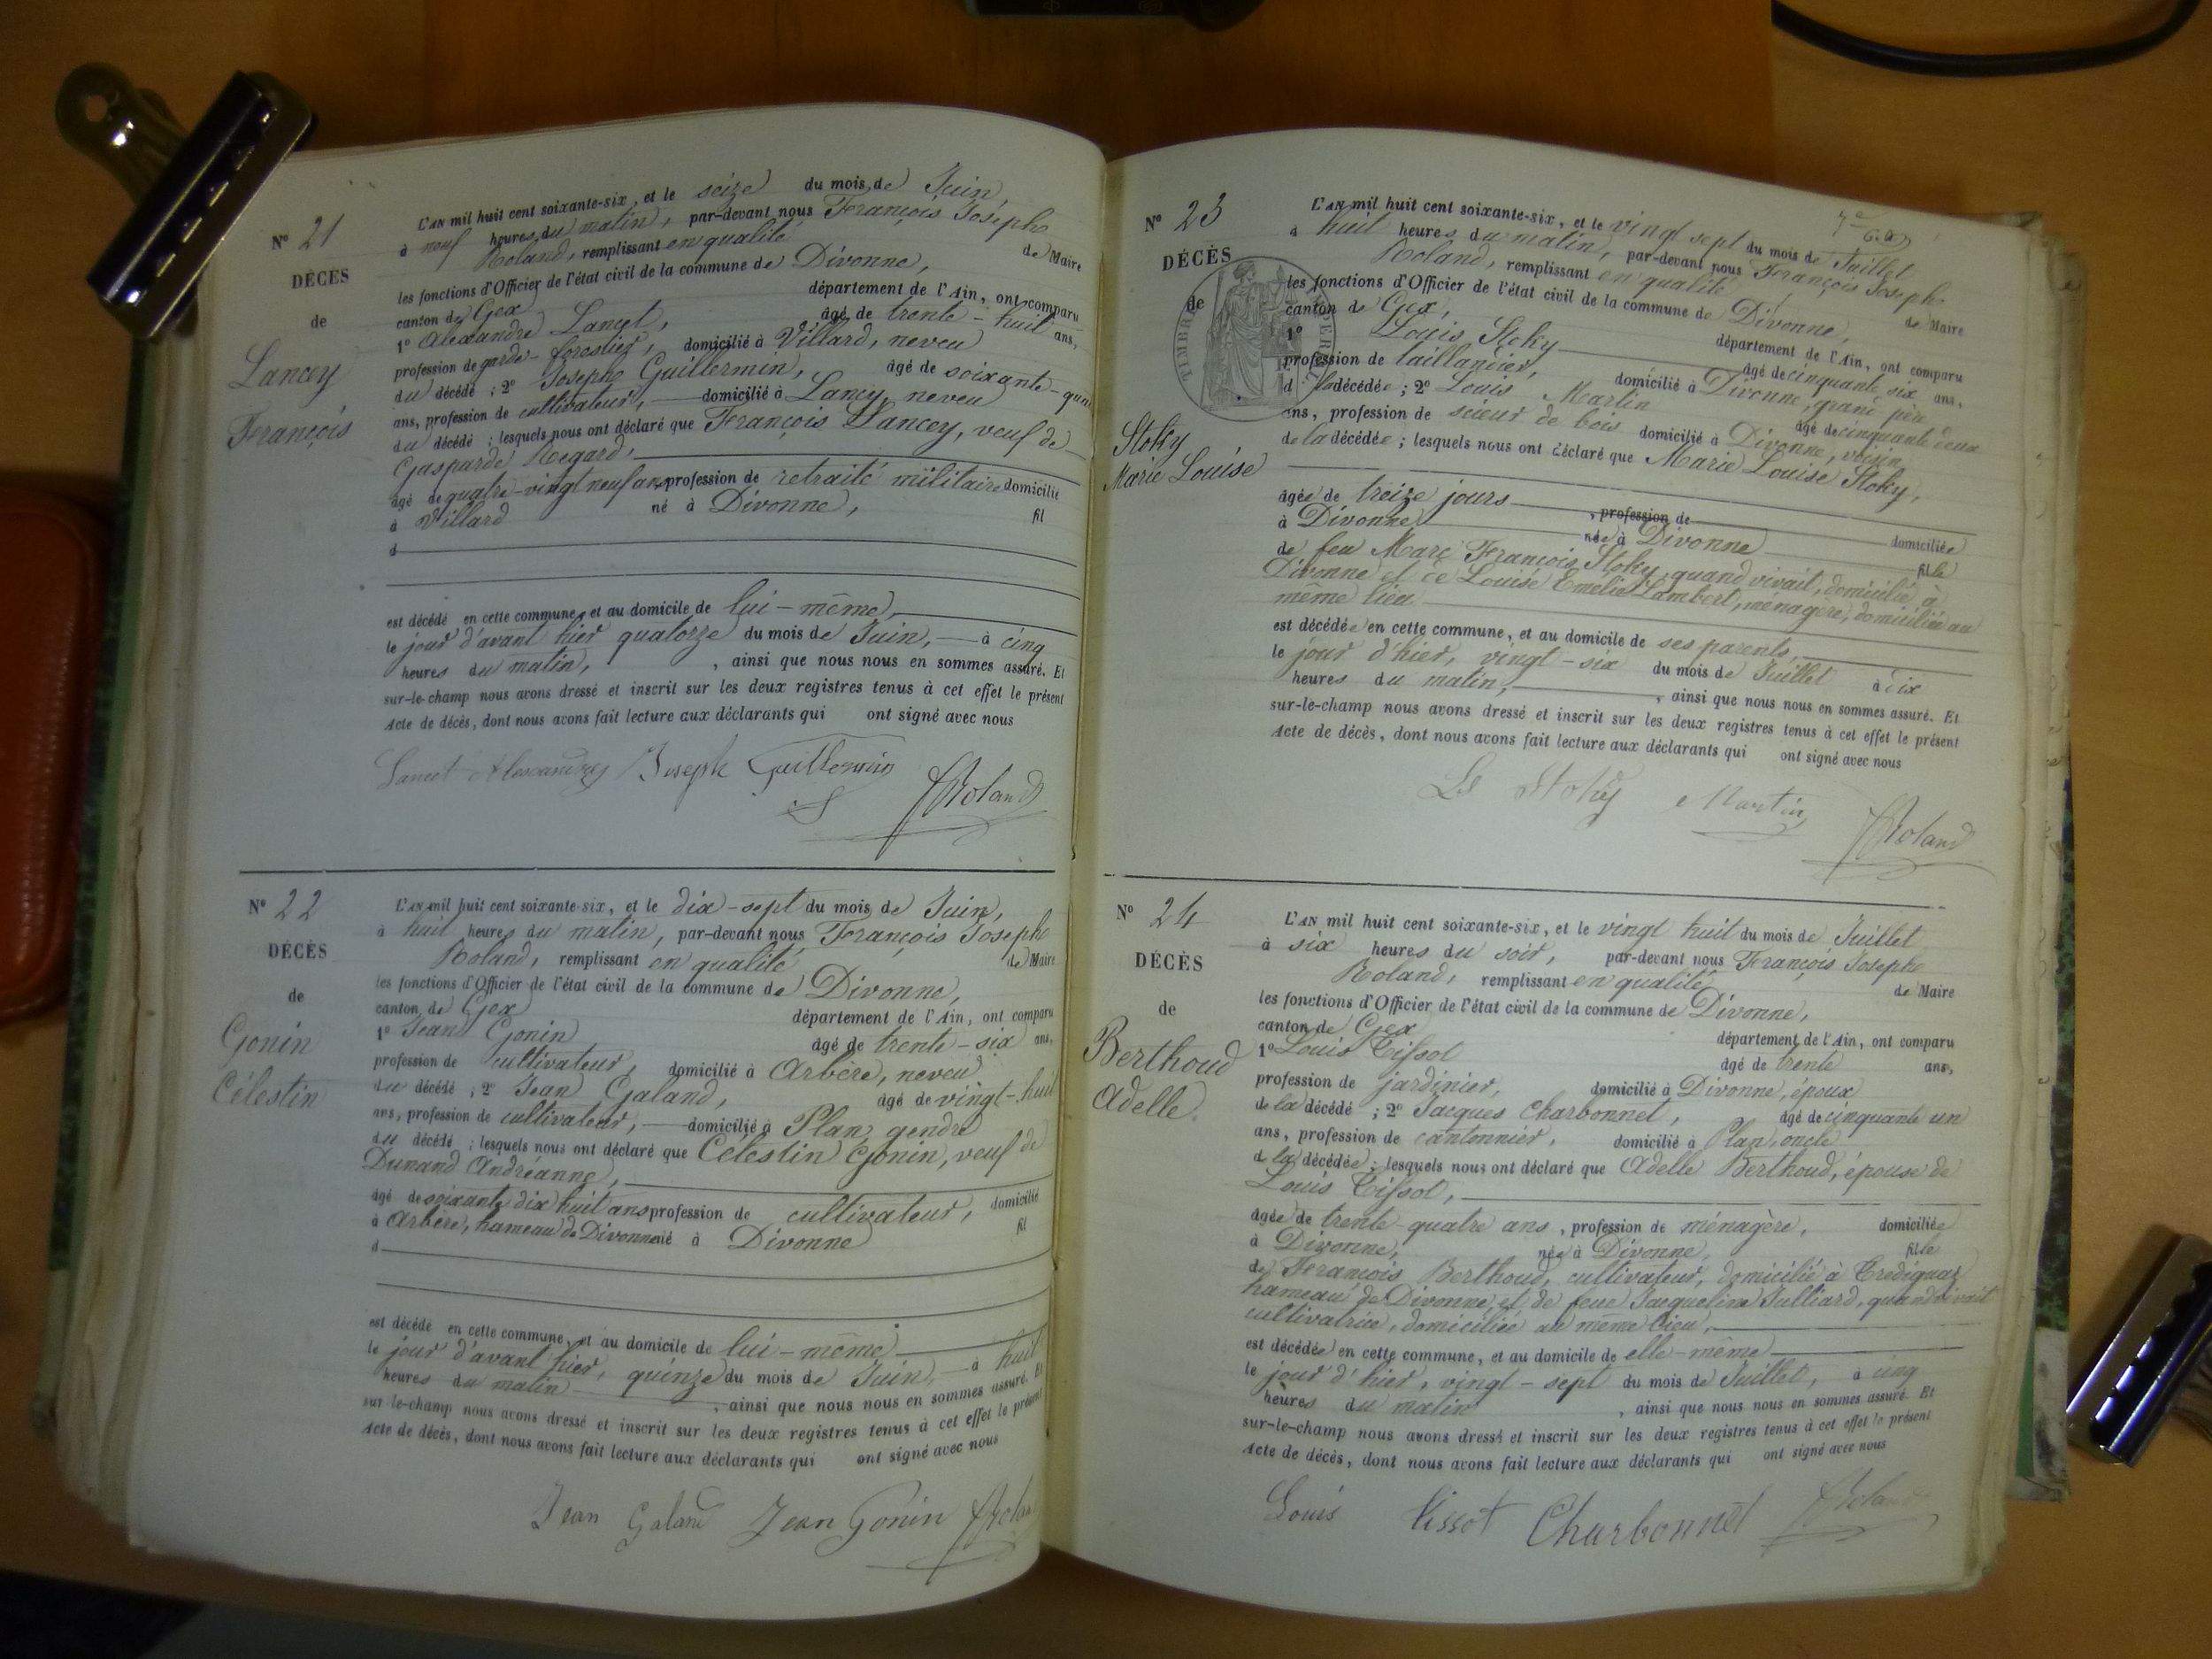 N° 21
DÉCÈS
de
Lancey
François
L'AN mil huit cent soixante-six, et le seize du mois de Juin,
à neuf heures du matin, par-devant nous François Joseph
Roland, remplissant en qualité de Maire
les fonctions d'Officier de l'état civil de la commune de Divonne,
canton de Gex département de l'Ain, ont comparu
1° Alexandre Lancet, âgé de trente-huit ans,
profession de garde-forestier, domicilié à Villard, neveu
du décédé ; 2° Joseph Guillermin, âgé de soixante-
ans, profession de cultivateur, domicilié à Lancy, neveu
du décédé ; lesquels nous ont déclaré que François Lancey, veuf de
Gasparde Regard,
âgé de quatre-vingt neuf ans, profession de retraité militaire domicilié
à Villard né à Divonne, fil
d
est décédé en cette commune, et au domicile de lui-même,
le jour d'avant hier quatorze du mois de Juin, à cinq
heures du matin, , ainsi que nous nous en sommes assuré. Et
sur-le-champ nous avons dressé et inscrit sur les deux registres tenus à cet effet le présent
Acte de décès, dont nous avons fait lecture aux déclarants qui ont signé avec nous
Lancet Alexandre Joseph Guillermin
Roland
N° 22
DÉCÈS
de
Gonin
Célestin
L'AN mil huit cent soixante-six, et le dix-sept du mois de Juin,
à huit heures du matin, par-devant nous François Joseph
Roland, remplissant en qualité de Maire
les fonctions d'Officier de l'état civil de la commune de Divonne,
canton de Gex département de l'Ain, ont comparu
1° Jean Gonin âgé de trente-six ans,
profession de cultivateur, domicilié à Arbère, neveu
du décédé ; 2° Jean Galand, âgé de vingt-huit
ans, profession de cultivateur, domicilié à Plan, gendre
du décédé ; lesquels nous ont déclaré que Célestin Gonin, veuf de
Dunand Andréanne,
âgé de soixante dix huit ans profession de cultivateur, domicilié
à Arbère, hameau de Divonne né à Divonne fil
d
est décédé en cette commune, et au domicile de lui-même
le jour d'avant hier, quinze du mois de Juin, à huit
heures du matin , ainsi que nous nous en sommes assuré. Et
sur-le-champ nous avons dressé et inscrit sur les deux registres tenus à cet effet le présent
Acte de décès, dont nous avons fait lecture aux déclarants qui ont signé avec nous
Jean Galand Jean Gonin Roland
N° 23
DÉCÈS
de
TIMBRE
Stoky
Marie Louise
L'AN mil huit cent soixante-six, et le vingt sept du mois de Juillet
à huit heures du matin, par-devant nous François Joseph
Roland, remplissant en qualité de Maire
les fonctions d'Officier de l'état civil de la commune de Divonne,
canton de Gex, département de l'Ain, ont comparu
1° Louis Stoky âgé de cinquante six ans,
profession de taillandier, domicilié à Divonne, grand père
d la décédée ; 2° Louis Martin âgé de cinquante deux
ans, profession de scieur de bois domicilié à Divonne, voisin
de la décédée ; lesquels nous ont déclaré que Marie Louise Stoky,
âgée de treize jours , profession de domiciliée
à Divonne née à Divonne fille
de feu Marc François Stoky, quand vivait, domicilié à
Divonne et de Louise Emélie Lambert, ménagère, domiciliée au
même lieu
est décédée en cette commune, et au domicile de ses parents,
le jour d'hier, vingt-six du mois de Juillet à dix
heures du matin, , ainsi que nous nous en sommes assuré. Et
sur-le-champ nous avons dressé et inscrit sur les deux registres tenus à cet effet le présent
Acte de décès, dont nous avons fait lecture aux déclarants qui ont signé avec nous
Ls Stoky Martin
Roland
N° 24
DÉCÈS
de
Berthoud
Adelle.
L'AN mil huit cent soixante-six, et le vingt huit du mois de Juillet
à six heures du soir, par-devant nous François Joseph
Roland, remplissant en qualité de Maire
les fonctions d'Officier de l'état civil de la commune de Divonne,
canton de Gex département de l'Ain, ont comparu
1° Louis Tissot âgé de trente ans,
profession de jardinier, domicilié à Divonne, époux
de la décédé ; 2° Jacques Charbonnet, âgé de cinquante un
ans, profession de cantonnier, domicilié à Plan, oncle
de la décédée ; lesquels nous ont déclaré que Adelle Berthoud, épouse de
Louis Tissot,
âgée de trente-quatre ans , profession de ménagère, domiciliée
à Divonne, née à Divonne, fille
de François Berthoud, cultivateur, domicilié à
hameau de Divonne, et de feue Jacqueline Julliard, quand vivait
cultivatrice, domiciliée au même lieu,
est décédée en cette commune, et au domicile de elle-même
le jour d'hier, vingt-sept du mois de Juillet, à cinq
heures du matin , ainsi que nous nous en sommes assuré. Et
sur-le-champ nous avons dressé et inscrit sur les deux registres tenus à cet effet le présent
Acte de décès, dont nous avons fait lecture aux déclarants qui ont signé avec nous
Louis Tissot Charbonnet Roland